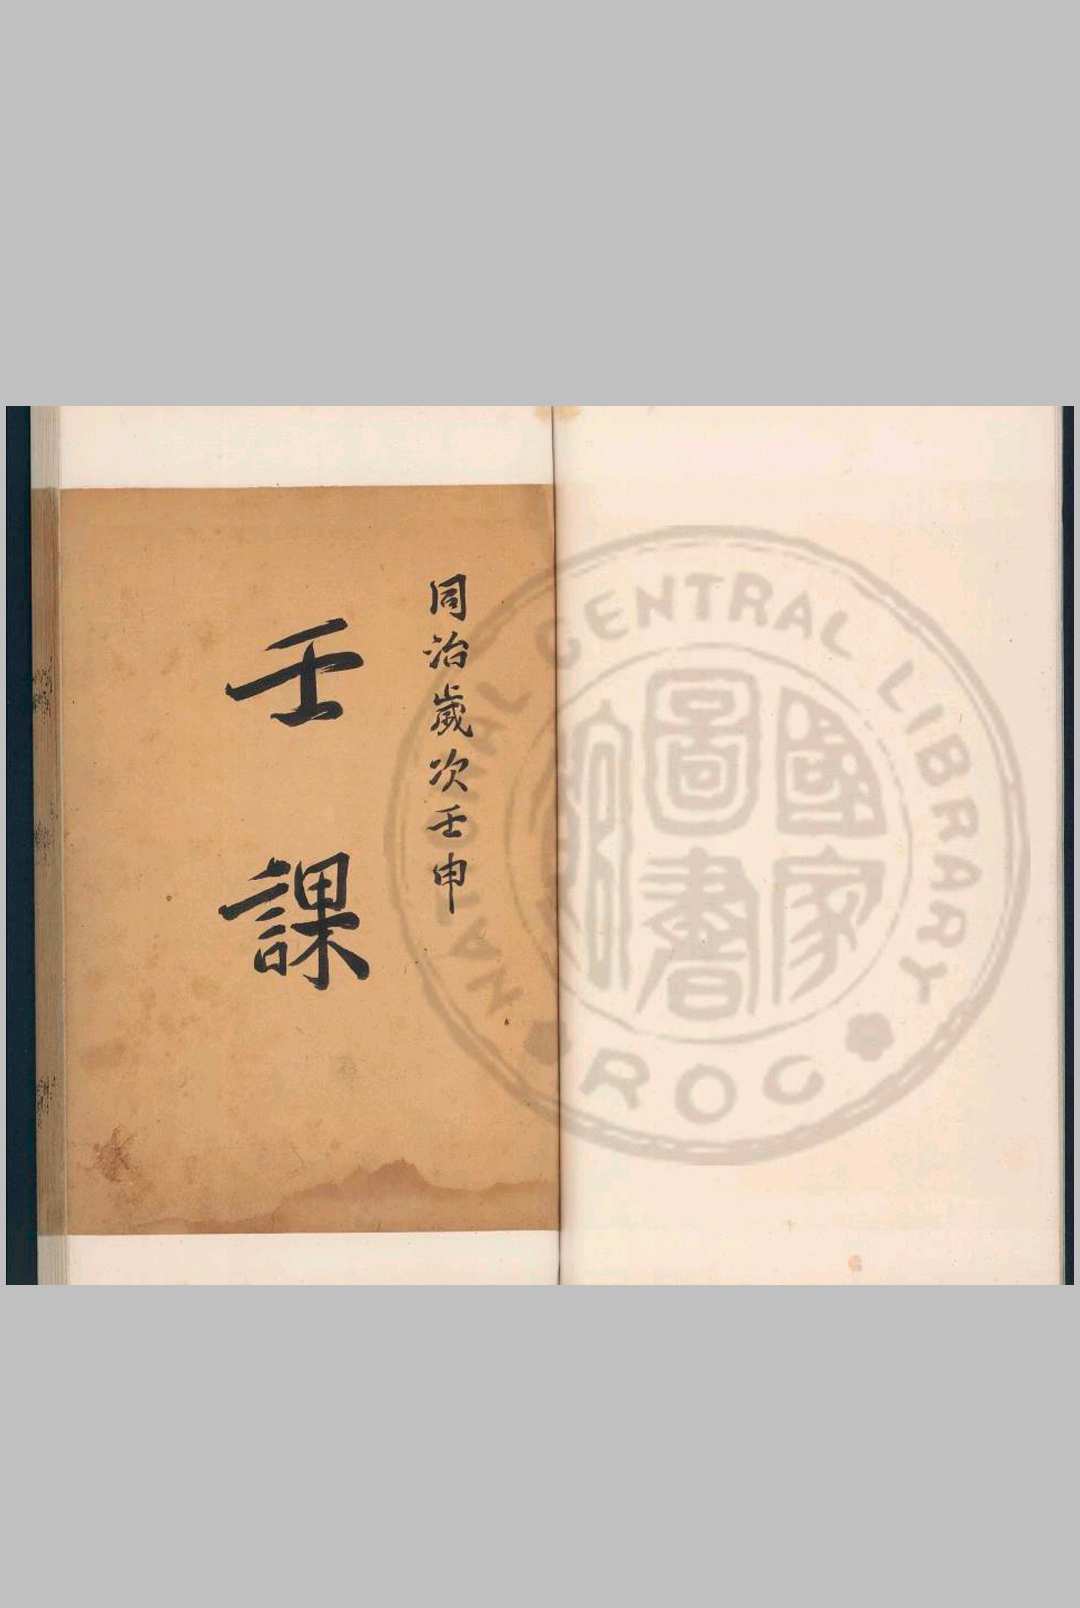 同治歲次壬申
壬課
NATIONAL CENTRAL LIBRARY
國家
圖書
館
ROC